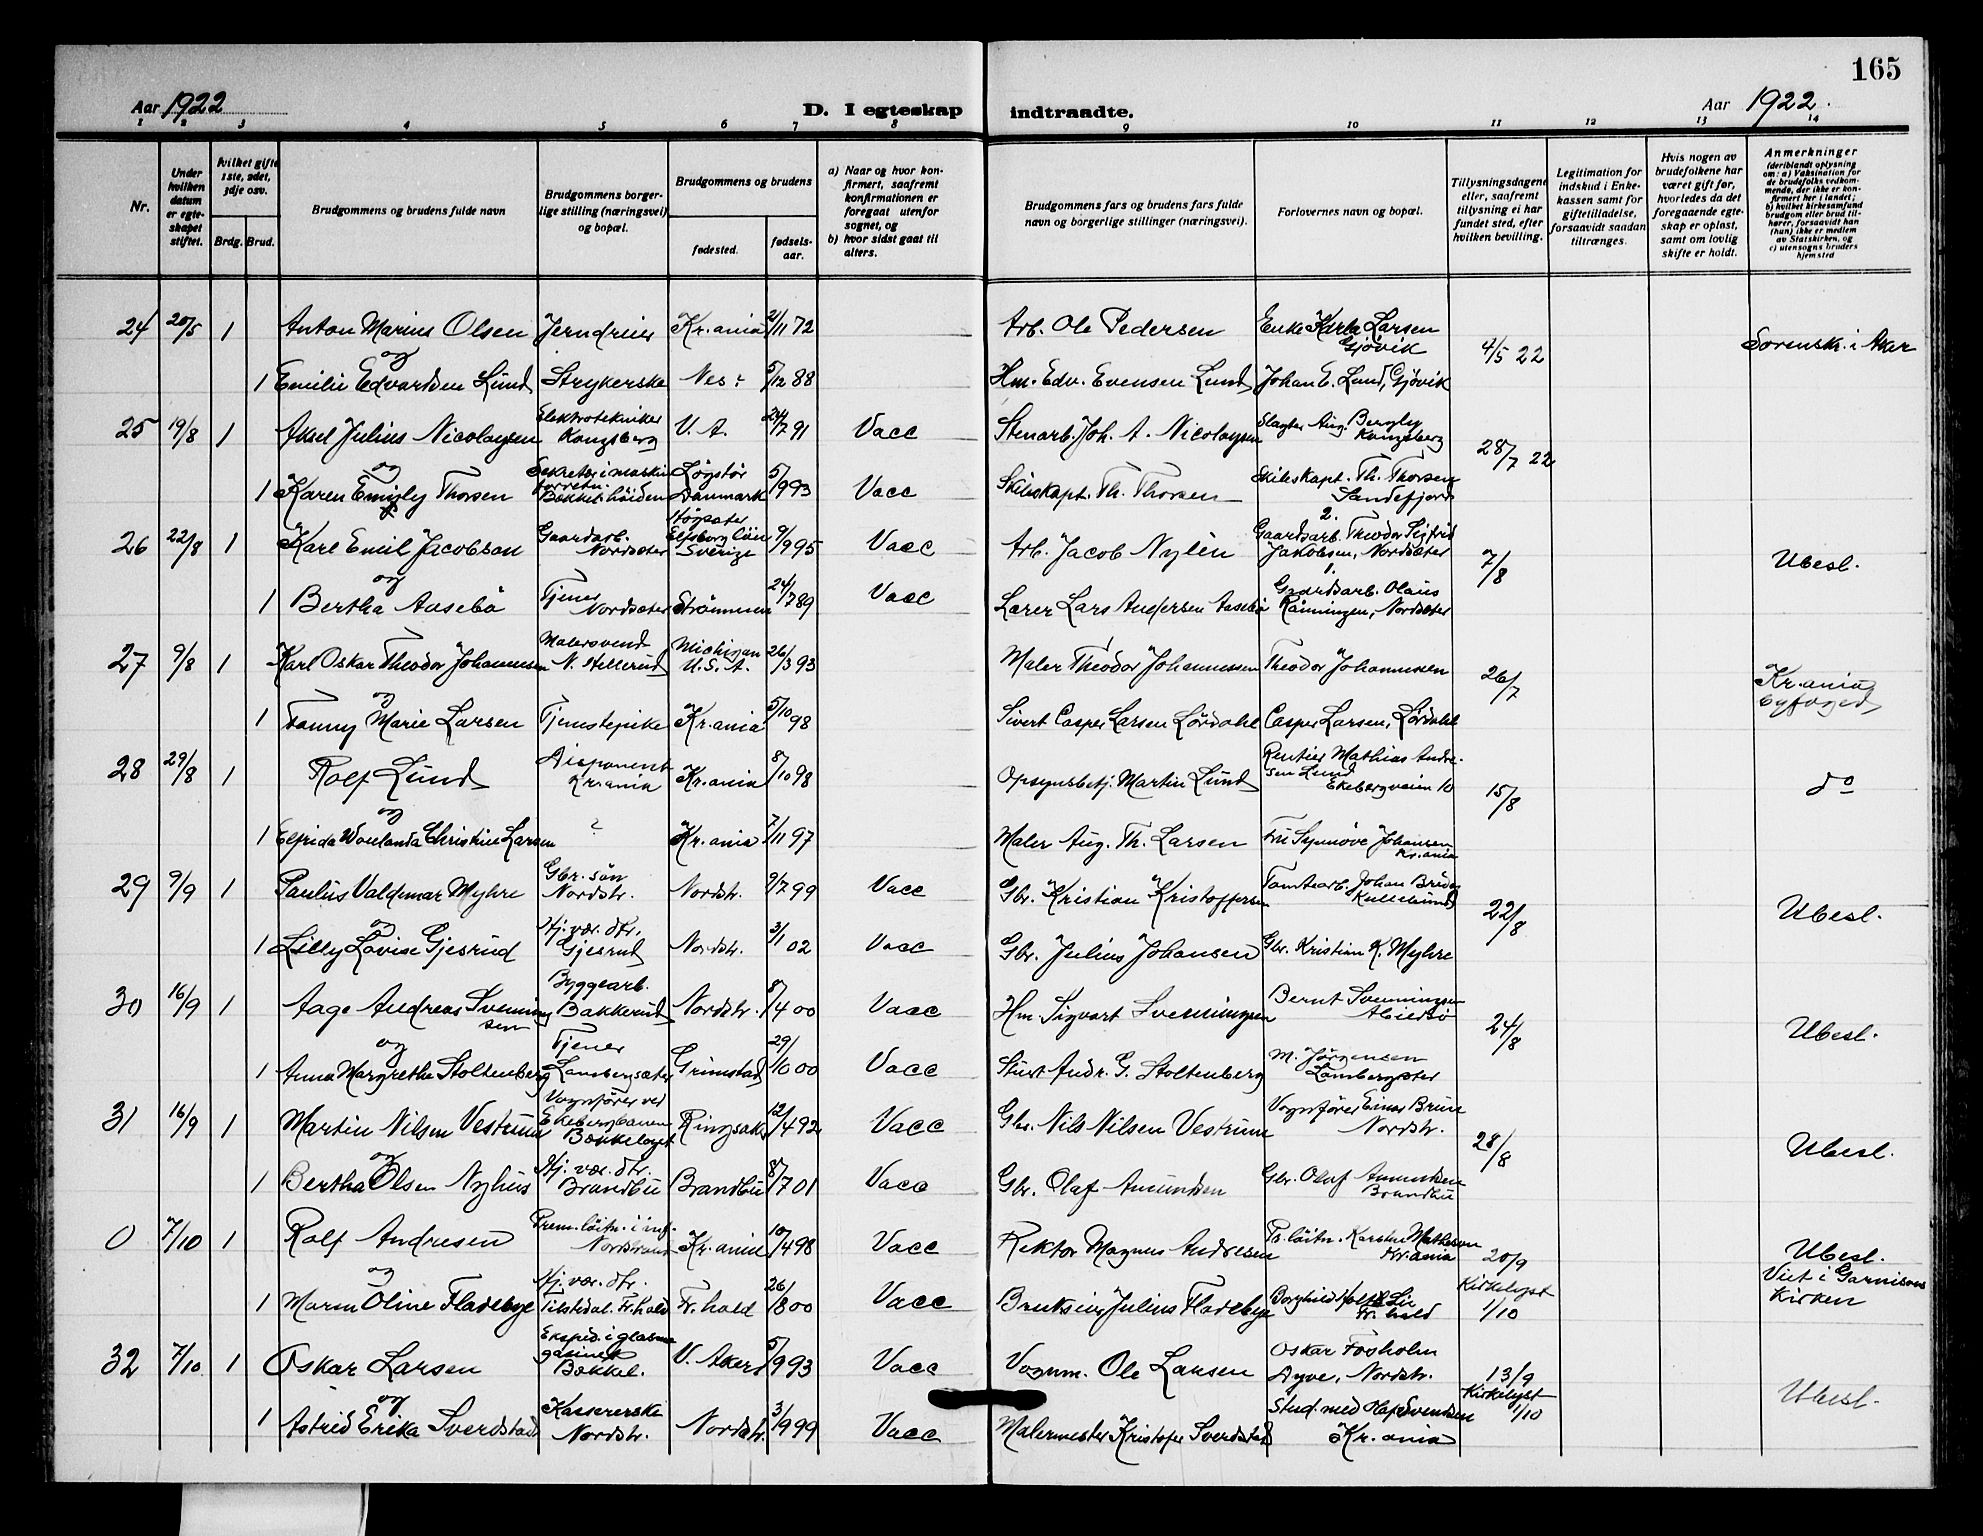 165
Aar 1922
D. I egteskap indtraadte.
Aar 1922.
1 2 3 4 5 6 7 8 9 10 11 12 13 14
Nr.
Under hvilken datum er egteskapet stiftet.
hvilket gifte 1ste, 2det, 3dje osv.
Brdg. Brud.
Brudgommens og brudens fulde navn
Brudgommens borgerlige stilling (næringsvei) og bopæl.
Brudgommens og brudens
fødested.
fødselsaar.
a) Naar og hvor konfirmert, saafremt konfirmationen er foregaat utenfor sognet, og
b) hvor sidst gaat til alters.
Brudgommens fars og brudens fars fulde navn og borgerlige stillinger (næringsvei).
Forlovernes navn og bopæl.
Tillysningsdagene eller, saafremt tillysning ei har fundet sted, efter hvilken bevilling.
Legitimation for indskud i Enkekassen samt for giftetilladelse, forsaavidt saadan tiltrænges.
Hvis nogen av brudefolkene har været gift før, hvorledes da det foregaaende egteskap er opløst, samt om lovlig skifte er holdt.
Anmerkninger (deriblandt oplysning om: a) Vaksination for de brudefolks vedkommende, der ikke er konfirmert her i landet; b) hvilket kirkesamfund brudgom eller brud tilhører, forsaavidt han (hun) ikke er medlem av Statskirken, og c) utensogns bruders hjemsted
24 20/5 1 Anton Marius Olsen Jerndreier Kr.ania 2/11 72 Arb. Ole Pedersen Enke Karla Larsen Gjøvik 4/5 22 Sorenskr. i Aker
og
1 Emilie Edvardsen Lund Strykerske Nes? 5/12 88 Hm. Edv. Evensen Lund Johan E. Lund, Gjøvik
25 19/8 1 Aksel Julius Nicolaysen Elektrotekniker Kongsberg V. A. 24/7 91 Vacc Stenarb. Joh. A. Nicolaysen Slagter Aug. Bergly Kongsberg 28/7 22
og
1 Karen Emily Thorsen Sekretær i maskinforretn. Bækkel.høiden Løgstør Danmark 5/9 93 Vacc Skibskapt. Th. Thorsen Skibskapt. Th. Thorsen Sandefjord
26 22/8 1 Karl Emil Jacobson Gaardarb. Nordsæter Elfsborg län Sverige 9/9 95 Vacc Arb. Jacob Nylén 2. Gaardsarb. Theodor Sigfrid Jakobsen, Nordsæter 7/8 Ubesl.
og
1 Bertha Aasebö Tjener Nordsæter Strömmen 24/7 89 Vacc Lærer Lars Andersen Aasebö 1. Gaardsarb. Olaus Rønningen, Nordsæter
27 9/8 1 Karl Oskar Theodor Johannesen Malersvend N. Stellerud Michigan U.S.A. 26/3 93 Maler Theodor Johannessen Theodor Johannessen 26/7 Kr.ania Byfoged
og
1 Fanny Marie Larsen Tjenestepike Kr.ania 5/10 98 Sivert Casper Larsen Lørdahl Casper Larsen, Lørdahl
28 29/8 1 Rolf Lund Disponent Kr.ania Kr.ania 8/10 98 Opsynsbetj. Martin Lund Rentier Mathias Andresen Lund Ekebergveien 10 15/8 do
og
1 Elfrida Christine Larsen ? Kr.ania 7/11 97 Maler Aug. Th. Larsen Fru Synnøve Johansen Kr.ania
29 9/9 1 Paulus Valdemar Myhre Gbr. søn Nordstr. Nordstr. 9/7 99 Vacc Gbr. Kristian Kristoffersen Tomtearb. Johan Kullebund 22/8 Ubesl.
og
1 Lilly Lovise Gjesrud Hj. vær. dtr. Gjesrud Nordstr. 3/1 02 Vacc Gbr. Julius Johansen Gbr. Kristian K. Myhre
30 16/9 1 Aage Andreas Svenningsen Byggearb. Bakkerud Nordstr. 8/4 00 Vacc Hm. Sigvart Svenningsen Bernt Svenningsen 24/8 Ubesl.
og
1 Anna Margrethe Stoltenberg Tjener Lambergsæter Grimstad 29/10 00 Vacc Andr. G. Stoltenberg M. Jörgensen Lambergsæter
31 16/9 1 Martin Nilsen Vestrum Vognfører ved Ekebergbanen Bækkelaget Ringsaker 12/4 92 Vacc Gbr. Nils Nilsen Vestrum Vognfører Einar Bruu Nordstr. 28/8 Ubesl.
og
1 Bertha Olsen Nyhus Hj. vær. dtr. Brandbu Brandbu 8/7 01 Vacc Gbr. Olaf Amundsen Gbr. Olaf Amundsen Brandbu
0 7/10 1 Rolf Andresen Prem.løitn. i inf. Nordstrand Kr.ania 10/4 98 Vacc Rektor Magnus Andresen Pr. løitn. Karsten Mathesen Kr.ania 20/9 Kirkelyst 1/10 Ubesl. Viet i Garnisons Kirken
og
1 Maren Oline Fladebye Hj. vær. dtr. Tistedal. Fr.hald Fr. hald 26/8 00 Vacc Brukseier Julius Fladebye Borghild Lie Fr.hald
32 7/10 1 Oskar Larsen Eksped. i glasmagasinet Bækkel. V. Aker 5/9 93 Vacc Vognm. Ole Larsen Oskar Fosholm Dyve, Nordstr. 13/9 Kirkelyst 1/10 Ubesl.
og
1 Astrid Erika Sverdstad Kassererske Nordstr. Nordstr. 3/9 99 Vacc Malermester Kristofer Sverdstad Stud. med Olaf Svendsen Kr.ania